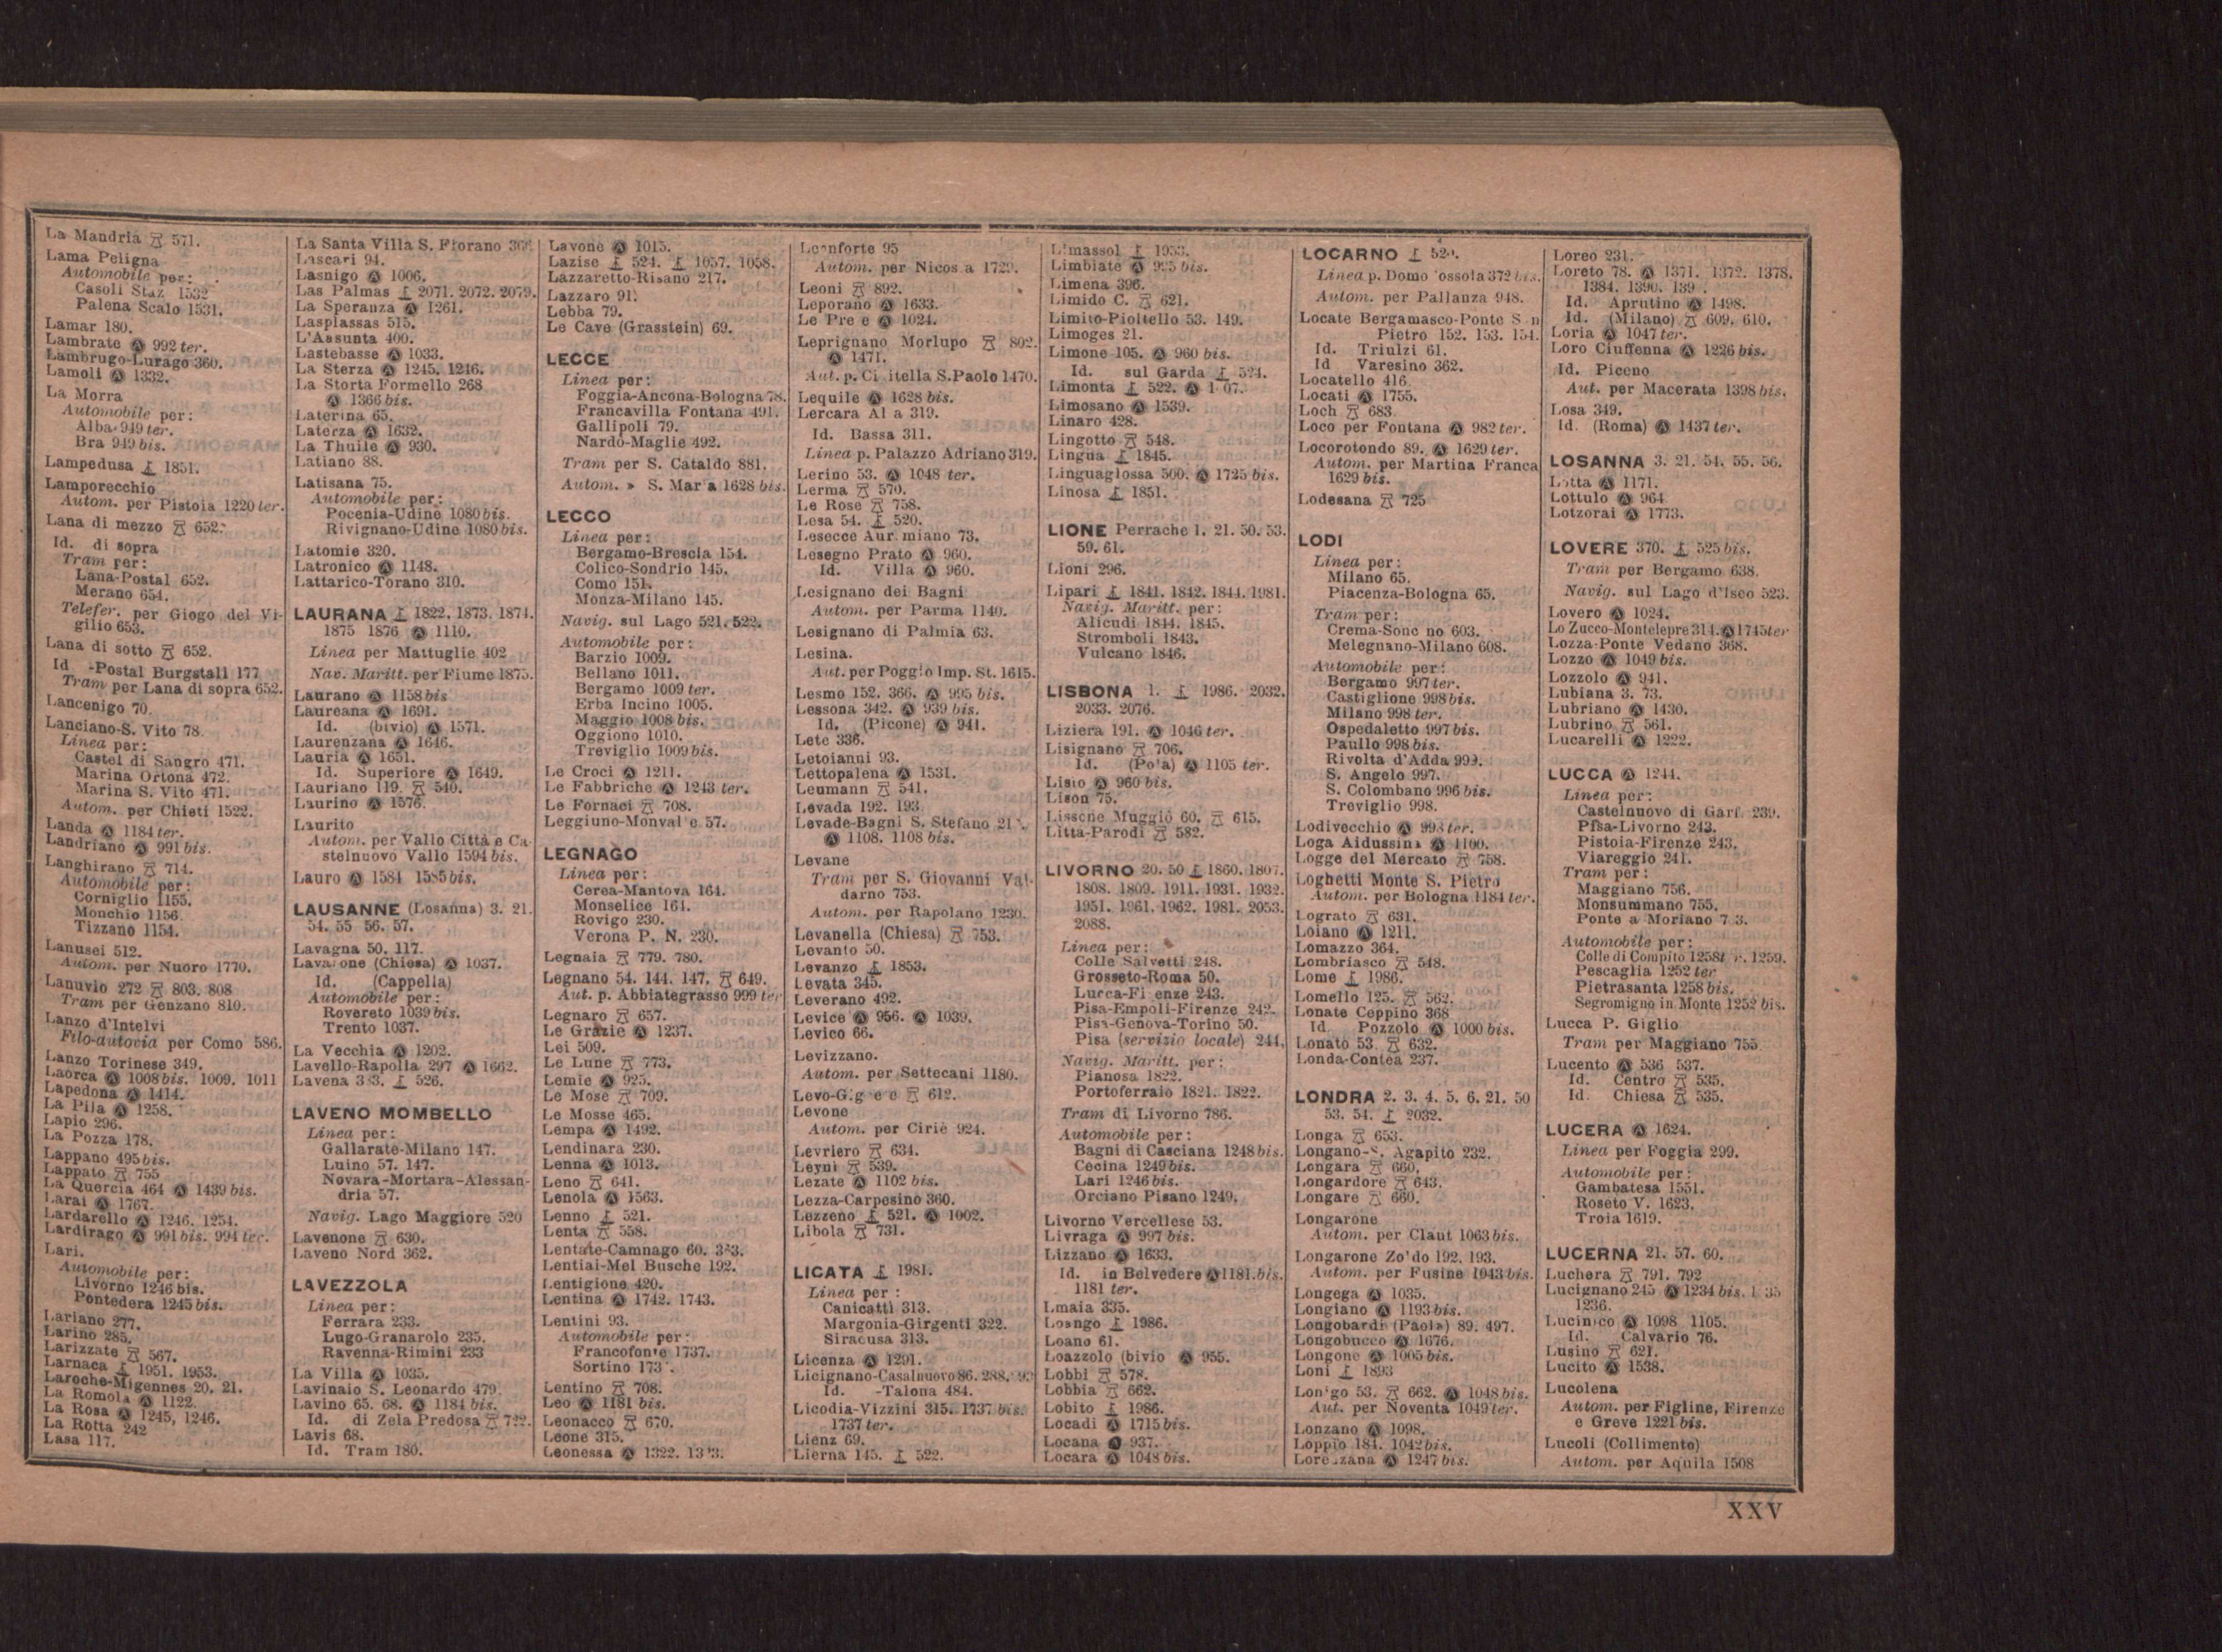 La Mandria 571.
Lama Peligna
Automobile per:
Casoli Staz 1532
Palena Scalo 1531.
Lamar 180.
Lambrate Ⓐ 992 ter.
Lambrugo-Lurago 360.
Lamoli Ⓐ 1332.
La Morra
Automobile per:
Alba 949 ter.
Bra 949 bis.
Lampedusa 1851.
Lamporecchio
Autom. per Pistoia 1220 ter.
Lana di mezzo 652.
Id. di sopra
Tram per:
Lana-Postal 652.
Merano 654.
Telefer. per Giogo del Vi-
gilio 653.
Lana di sotto 652.
Id -Postal Burgstall 177
Tram per Lana di sopra 652.
Lancenigo 70.
Lanciano-S. Vito 78.
Linea per:
Castel di Sangro 471.
Marina Ortona 472.
Marina S. Vito 471.
Autom. per Chieti 1522.
Landa Ⓐ 1184 ter.
Landriano Ⓐ 991 bis.
Langhirano 714.
Automobile per:
Corniglio 1155.
Monchio 1156.
Tizzano 1154.
Lanusei 512.
Autom. per Nuoro 1770.
Lanuvio 272 803. 808
Tram per Genzano 810.
Lanzo d'Intelvi
Filo-autovia per Como 586.
Lanzo Torinese 349.
Laorca Ⓐ 1008 bis. 1009. 1011
Lapedona Ⓐ 1414.
La Pila Ⓐ 1258.
Lapio 296.
La Pozza 178.
Lappano 495 bis.
Lappato 755
La Quercia 464 Ⓐ 1439 bis.
Larai Ⓐ 1767.
Lardarello Ⓐ 1246. 1254.
Lardirago Ⓐ 991 bis. 994 ter.
Lari.
Automobile per:
Livorno 1246 bis.
Pontedera 1245 bis.
Lariano 277.
Larino 285.
Larizzate 567.
Larnaca 1951. 1953.
Laroche-Migennes 20. 21.
La Romola Ⓐ 1122.
La Rosa Ⓐ 1245, 1246.
La Rotta 242
Lasa 117.
La Santa Villa S. Fiorano
Lascari 94.
Lasnigo Ⓐ 1006.
Las Palmas 2071. 2072. 2079.
La Speranza Ⓐ 1261.
Lasplassas 515.
L'Assunta 400.
Lastebasse Ⓐ 1033.
La Sterza Ⓐ 1245. 1246.
La Storta Formello 268
Ⓐ 1366 bis.
Laterina 65.
Laterza Ⓐ 1632.
La Thuile Ⓐ 930.
Latiano 88.
Latisana 75.
Automobile per:
Pocenia-Udine 1080 bis.
Rivignano-Udine 1080 bis.
Latomie 320.
Latronico Ⓐ 1148.
Lattarico-Torano 310.
LAURANA 1822. 1873. 1874.
1875 1876 Ⓐ 1110.
Linea per Mattuglie 402
Nav. Maritt. per Fiume 1875.
Laurano Ⓐ 1158 bis
Laureana Ⓐ 1691.
Id. (bivio) Ⓐ 1571.
Laurenzana Ⓐ 1646.
Lauria Ⓐ 1651.
Id. Superiore Ⓐ 1649.
Lauriano 119. 540.
Laurino Ⓐ 1576.
Laurito
Autom. per Vallo Città e Ca-
stelnuovo Vallo 1594 bis.
Lauro Ⓐ 1584 1585 bis.
LAUSANNE (Losanna) 3. 21.
54. 55 56. 57.
Lavagna 50. 117.
Lavarone (Chiesa) Ⓐ 1037.
Id. (Cappella)
Automobile per:
Rovereto 1039 bis.
Trento 1037.
La Vecchia Ⓐ 1202.
Lavello-Rapolla 297 Ⓐ 1662.
Lavena 526.
LAVENO MOMBELLO
Linea per:
Gallarate-Milano 147.
Luino 57. 147.
Novara-Mortara-Alessan-
dria 57.
Navig. Lago Maggiore 520
Lavenone 630.
Laveno Nord 362.
LAVEZZOLA
Linea per:
Ferrara 233.
Lugo-Granarolo 235.
Ravenna-Rimini 233
La Villa Ⓐ 1035.
Lavinaio S. Leonardo 479.
Lavino 65. 68. Ⓐ 1184 bis.
Id. di Zela Predosa
Lavis 68.
Id. Tram 180.
Lavone Ⓐ 1015.
Lazise 524. 1057. 1058.
Lazzaretto-Risano 217.
Lazzaro 91.
Lebba 79.
Le Cave (Grasstein) 69.
LECCE
Linea per:
Foggia-Ancona-Bologna 78.
Francavilla Fontana 491.
Gallipoli 79.
Nardò-Maglie 492.
Tram per S. Cataldo 881.
Autom. » S. Maria 1628 bis.
LECCO
Linea per:
Bergamo-Brescia 154.
Colico-Sondrio 145.
Como 151.
Monza-Milano 145.
Navig. sul Lago 521. 522.
Automobile per:
Barzio 1009.
Bellano 1011.
Bergamo 1009 ter.
Erba Incino 1005.
Maggio 1008 bis.
Oggiono 1010.
Treviglio 1009 bis.
Le Croci Ⓐ 1211.
Le Fabbriche Ⓐ 1243 ter.
Le Fornaci 708.
Leggiuno-Monvalle 57.
LEGNAGO
Linea per:
Cerea-Mantova 164.
Monselice 164.
Rovigo 230.
Verona P. N. 230.
Legnaia 779. 780.
Legnano 54. 144. 147. 649.
Aut. p. Abbiategrasso 999 ter
Legnaro 657.
Le Grazie Ⓐ 1237.
Lei 509.
Le Lune 773.
Lemie Ⓐ 925.
Le Mose 709.
Le Mosse 465.
Lempa Ⓐ 1492.
Lendinara 230.
Lenna Ⓐ 1013.
Leno 641.
Lenola Ⓐ 1563.
Lenno 521.
Lenta 558.
Lentate-Camnago 60.
Lentiai-Mel Busche 192.
Lentigione 420.
Lentina Ⓐ 1742. 1743.
Lentini 93.
Automobile per:
Francofonte 1737.
Sortino
Lentino 708.
Leo Ⓐ 1181 bis.
Leonacco 670.
Leone 315.
Leonessa Ⓐ 1322.
Leonforte 95
Autom. per Nicosia
Leoni 892.
Leporano Ⓐ 1633.
Le Prese Ⓐ 1024.
Leprignano Morlupo 802.
Ⓐ 1471.
Aut. p. Civitella S. Paolo 1470.
Lequile Ⓐ 1628 bis.
Lercara Alta 319.
Id. Bassa 311.
Linea p. Palazzo Adriano 319.
Lerino 53. Ⓐ 1048 ter.
Lerma 570.
Le Rose 758.
Lesa 54. 520.
Lesecce Aurimiano 73.
Lesegno Prato Ⓐ 960.
Id. Villa Ⓐ 960.
Lesignano dei Bagni
Autom. per Parma 1140.
Lesignano di Palmia 63.
Lesina.
Aut. per Poggio Imp. St. 1615.
Lesmo 152. 366. Ⓐ 995 bis.
Lessona 342. Ⓐ 939 bis.
Id. (Picone) Ⓐ 941.
Lete 336.
Letoianni 93.
Lettopalena Ⓐ 1531.
Leumann 541.
Levada 192. 193
Levade-Bagni S. Stefano
Ⓐ 1108. 1108 bis.
Levane
Tram per S. Giovanni Val-
darno 753.
Autom. per Rapolano 1230.
Levanella (Chiesa) 753.
Levanto 50.
Levanzo 1853.
Levata 345.
Leverano 492.
Levice Ⓐ 956. Ⓐ 1039.
Levico 66.
Levizzano.
Autom. per Settecani 1180.
Levo-Gignese 612.
Levone
Autom. per Ciriè 924.
Levriero 634.
Leyni 539.
Lezate Ⓐ 1102 bis.
Lezza-Carpesino 360.
Lezzeno 521. Ⓐ 1002.
Libola 731.
LICATA 1981.
Linea per:
Canicatti 313.
Margonia-Girgenti 322.
Siracusa 313.
Licenza Ⓐ 1291.
Licignano-Casalnuovo 86. 288.
Id. -Talona 484.
Licodia-Vizzini 315. 1737 bis.
1737 ter.
Lienz 69.
Lierna 145. 522.
Limassol 1953.
Limbiate Ⓐ 995 bis.
Limena 396.
Limido C. 621.
Limito-Pioltello 53. 149.
Limoges 21.
Limone 105. Ⓐ 960 bis.
Id. sul Garda 524.
Limonta 522. Ⓐ
Limosano Ⓐ 1539.
Linaro 428.
Lingotto 548.
Lingua 1845.
Linguaglossa 500. Ⓐ 1725 bis.
Linosa 1851.
LIONE Perrache 1. 21. 50. 53.
59. 61.
Lioni 296.
Lipari 1841. 1842. 1844. 1981.
Navig. Maritt. per:
Alicudi 1844. 1845.
Stromboli 1843.
Vulcano 1846.
LISBONA 1. 1986. 2032.
2033. 2076.
Liziera 191. Ⓐ 1046 ter.
Lisignano 706.
Id. (Pola) Ⓐ 1105 ter.
Lisio Ⓐ 960 bis.
Lison 75.
Lissone Muggiò 60. 615.
Litta-Parodi 582.
LIVORNO 20. 50 1860. 1807.
1808. 1809. 1911. 1931. 1932.
1951. 1961. 1962. 1981. 2053.
2088.
Linea per:
Colle Salvetti 248.
Grosseto-Roma 50.
Lucca-Firenze 243.
Pisa-Empoli-Firenze 242.
Pisa-Genova-Torino 50.
Pisa (servizio locale) 244.
Navig. Maritt. per:
Pianosa 1822.
Portoferraio 1821. 1822.
Tram di Livorno 786.
Automobile per:
Bagni di Casciana 1248 bis.
Cecina 1249 bis.
Lari 1246 bis.
Orciano Pisano 1249.
Livorno Vercellese 53.
Livraga Ⓐ 997 bis.
Lizzano Ⓐ 1633.
Id. in Belvedere Ⓐ 1181 bis.
1181 ter.
Lmaia 335.
Loango 1986.
Loano 61.
Loazzolo (bivio Ⓐ 955.
Lobbi 578.
Lobbia 662.
Lobito 1986.
Locadi Ⓐ 1715 bis.
Locana Ⓐ 937.
Locara Ⓐ 1048 bis.
LOCARNO
Linea p. Domodossola 372 bis.
Autom. per Pallanza 948.
Locate Bergamasco-Ponte San
Pietro 152. 153. 154.
Id. Triulzi 61.
Id Varesino 362.
Locatello 416
Locati Ⓐ 1755.
Loch 683
Loco per Fontana Ⓐ 982 ter.
Locorotondo 89. Ⓐ 1629 ter.
Autom. per Martina Franca
1629 bis.
Lodesana 725
LODI
Linea per:
Milano 65.
Piacenza-Bologna 65.
Tram per:
Crema-Soncino 603.
Melegnano-Milano 608.
Automobile per:
Bergamo 997 ter.
Castiglione 998 bis.
Milano 998 ter.
Ospedaletto 997 bis.
Paullo 998 bis.
Rivolta d'Adda 999.
S. Angelo 997.
S. Colombano 996 bis.
Treviglio 998.
Lodivecchio Ⓐ 998 ter.
Loga Aidussina Ⓐ 1100.
Logge del Mercato 758.
Loghetti Monte S. Pietro
Autom. per Bologna 1184 ter.
Lograto 631.
Loiano Ⓐ 1211.
Lomazzo 364.
Lombriasco 548.
Lome 1986.
Lomello 125. 562.
Lonate Ceppino 368
Id. Pozzolo Ⓐ 1000 bis.
Lonato 53. 632.
Londa-Contea 237.
LONDRA 2. 3. 4. 5. 6. 21. 50
53. 54. 2032.
Longa 653.
Longano-S. Agapito 232.
Longara 660.
Longardore 643.
Longare 660.
Longarone
Autom. per Claut 1063 bis.
Longarone Zoldo 192. 193.
Autom. per Fusine 1043 bis.
Longega Ⓐ 1035.
Longiano Ⓐ 1193 bis.
Longobardi (Paola) 89. 497.
Longobucco Ⓐ 1676.
Longone Ⓐ 1005 bis.
Loni 1893
Lonigo 53. 662. Ⓐ 1048 bis.
Aut. per Noventa 1049 ter.
Lonzano Ⓐ 1098.
Loppio 184. 1042 bis.
Lorenzana Ⓐ 1247 bis.
Loreo 231.
Loreto 78. Ⓐ 1371. 1372. 1378.
1384. 1390.
Id. Aprutino Ⓐ 1498.
Id. (Milano) 609. 610.
Loria Ⓐ 1047 ter.
Loro Ciuffenna Ⓐ 1226 bis.
Id. Piceno
Aut. per Macerata 1398 bis.
Losa 349.
Id. (Roma) Ⓐ 1437 ter.
LOSANNA 3. 21. 54. 55. 56.
Lotta Ⓐ 1171.
Lottulo Ⓐ 964
Lotzorai Ⓐ 1773.
LOVERE 370. 525 bis.
Tram per Bergamo 638.
Navig. sul Lago d'Iseo 523.
Lovero Ⓐ 1024.
Lo Zucco-Montelepre 314. Ⓐ 1745 ter
Lozza-Ponte Vedano 368.
Lozzo Ⓐ 1049 bis.
Lozzolo Ⓐ 941.
Lubiana 3. 73.
Lubriano Ⓐ 1430.
Lubrino 561.
Lucarelli Ⓐ 1222.
LUCCA Ⓐ 1244.
Linea per:
Castelnuovo di Garf. 239.
Pisa-Livorno 243.
Pistoia-Firenze 243.
Viareggio 241.
Tram per:
Maggiano 756.
Monsummano 755.
Ponte a Moriano
Automobile per:
Colle di Compito 1258 ter. 1259.
Pescaglia 1252 ter
Pietrasanta 1258 bis.
Segromigno in Monte 1252 bis.
Lucca P. Giglio
Tram per Maggiano 755
Lucento Ⓐ 536 537.
Id. Centro 535.
Id. Chiesa 535.
LUCERA Ⓐ 1624.
Linea per Foggia 299.
Automobile per:
Gambatesa 1551.
Roseto V. 1623.
Troia 1619.
LUCERNA 21. 57. 60.
Luchera 791. 792
Lucignano 245 Ⓐ 1234 bis.
1236.
Lucinico Ⓐ 1098 1105.
Id. Calvario 76.
Lusino 621.
Lucito Ⓐ 1538.
Lucolena
Autom. per Figline, Firenze
e Greve 1221 bis.
Lucoli (Collimento)
Autom. per Aquila 1508
XXV